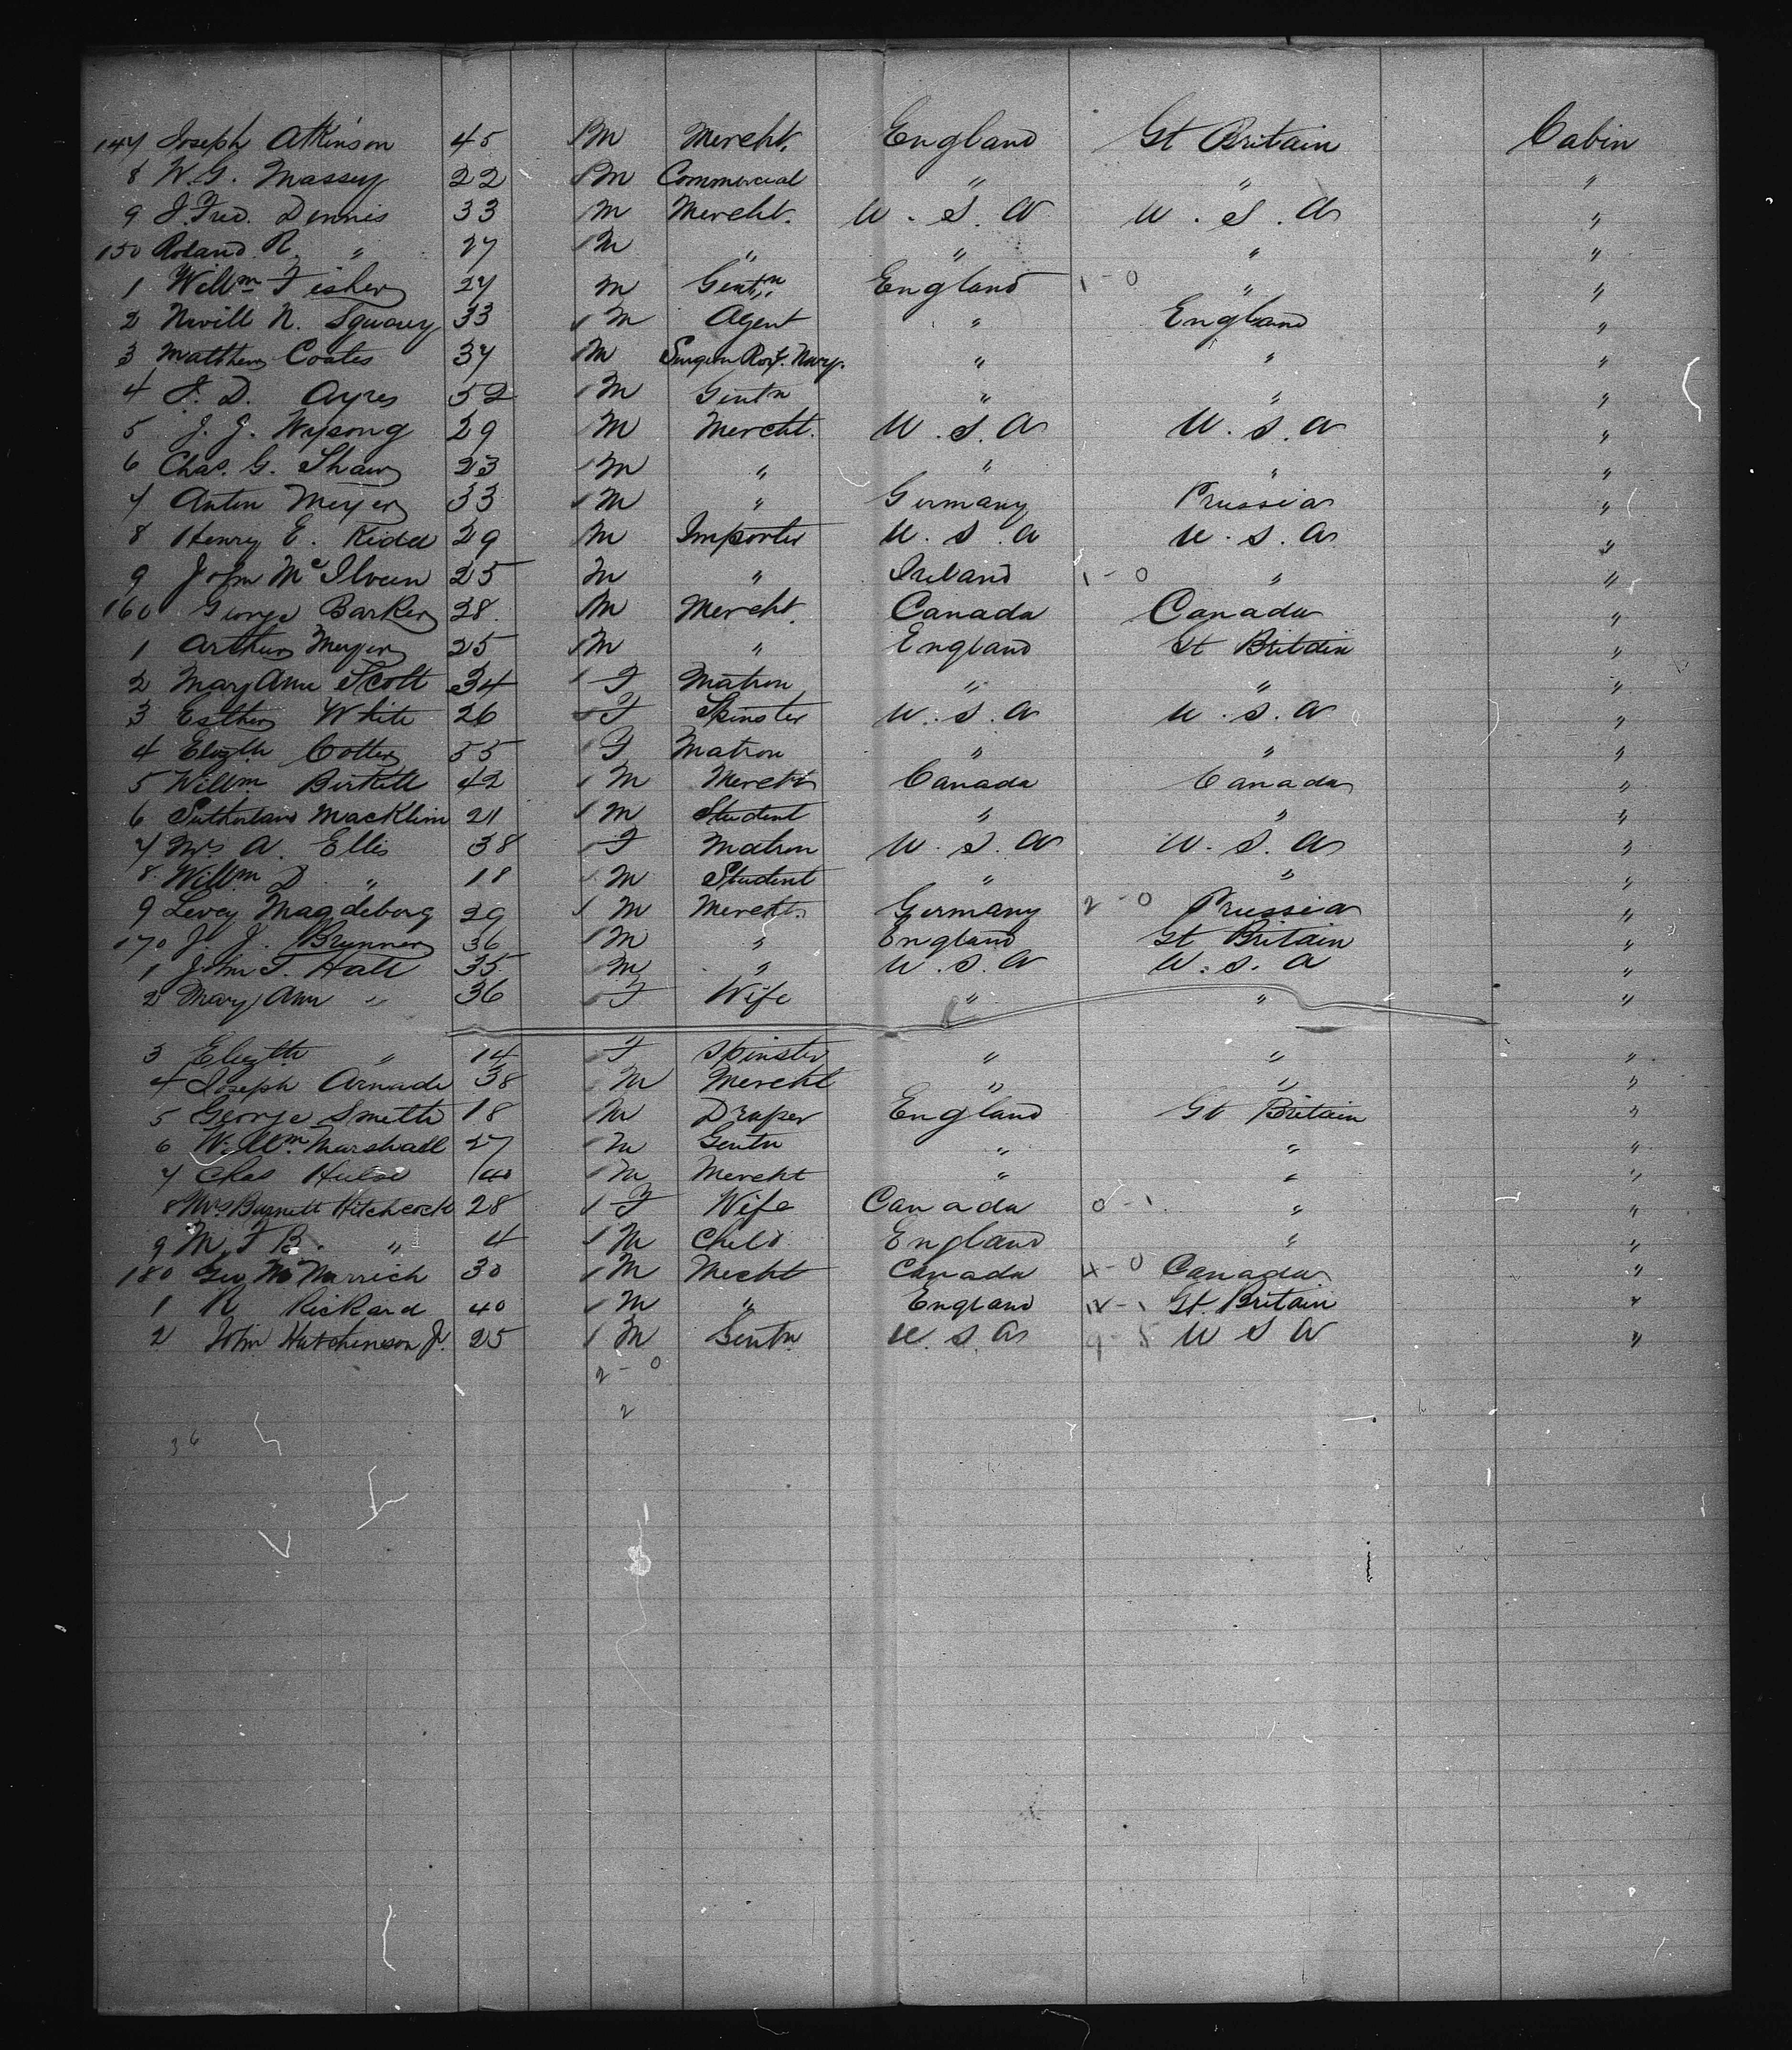 147 Joseph Atkinson 45 M Mercht. England Gt Britain Cabin
8 W. G. Massey 22 M Commercial " " "
9 J. Fred. Dennis 33 M Mercht. U. S. A U. S. A "
150 Roland R. " 27 M " " " "
1 Willm Fisher 27 M Gentn England 1-0 " "
2 Nevill N. Squarey 33 M Agent " England "
3 Matthew Coates 37 M Surgeon Navy. " " "
4 J. D. Ayres 52 M Gentn " " "
5 J. J. Wysong 29 M Mercht. U. S. A U. S. A "
6 Chas. G. Shaw 23 M " " " "
7 Anton Meyer 33 M " Germany Prussia "
8 Henry E. Kidd 29 M Importer U. S. A U. S. A "
9 John McIlveen 25 M " Ireland 1-0 " "
160 George Barker 28. M Mercht. Canada Canada "
1 Arthur Meyer 25 M " England Gt Britain "
2 Mary Ann Scott 34 F Matron " " "
3 Esther White 26 F Spinster U. S. A U. S. A "
4 Elizth Cotter 55 F Matron " " "
5 Willm Birkett 42 M Mercht Canada Canada "
6 Sutherland Macklim 21 M Student " " "
7 Mrs A. Ellis 38 F Matron U. S. A U. S. A "
8 Willm D " 18 M Student " " "
9 Levey Magdeborg 29 M Mercht. Germany 2-0 Prussia "
170 J. J. Brunner 36 M " England Gt Britain "
1 John T. Hall 35 M " U. S. A U. S. A "
2 Mary Ann " 36 F Wife " " "
3 Elizth " 14 F Spinster " " "
4 Joseph 38 M Mercht " " "
5 George Smith 18 M Draper England Gt Britain "
6 Willm. Marshall 27 M Gentn " " "
7 Chas Hulse 40 M Mercht " " "
8 Mrs Burnett Hitchcock 28 F Wife Canada 0-1 " "
9 M. F. B. " 4 M Child England " "
180 Geo McMurrich 30 M Mecht Canada 4-0 Canada "
1 R Rickard 40 M " England Gt. Britain "
2 John Hutchinson Jr. 25 M Gentn U. S. A U S A "
2-0
2
36